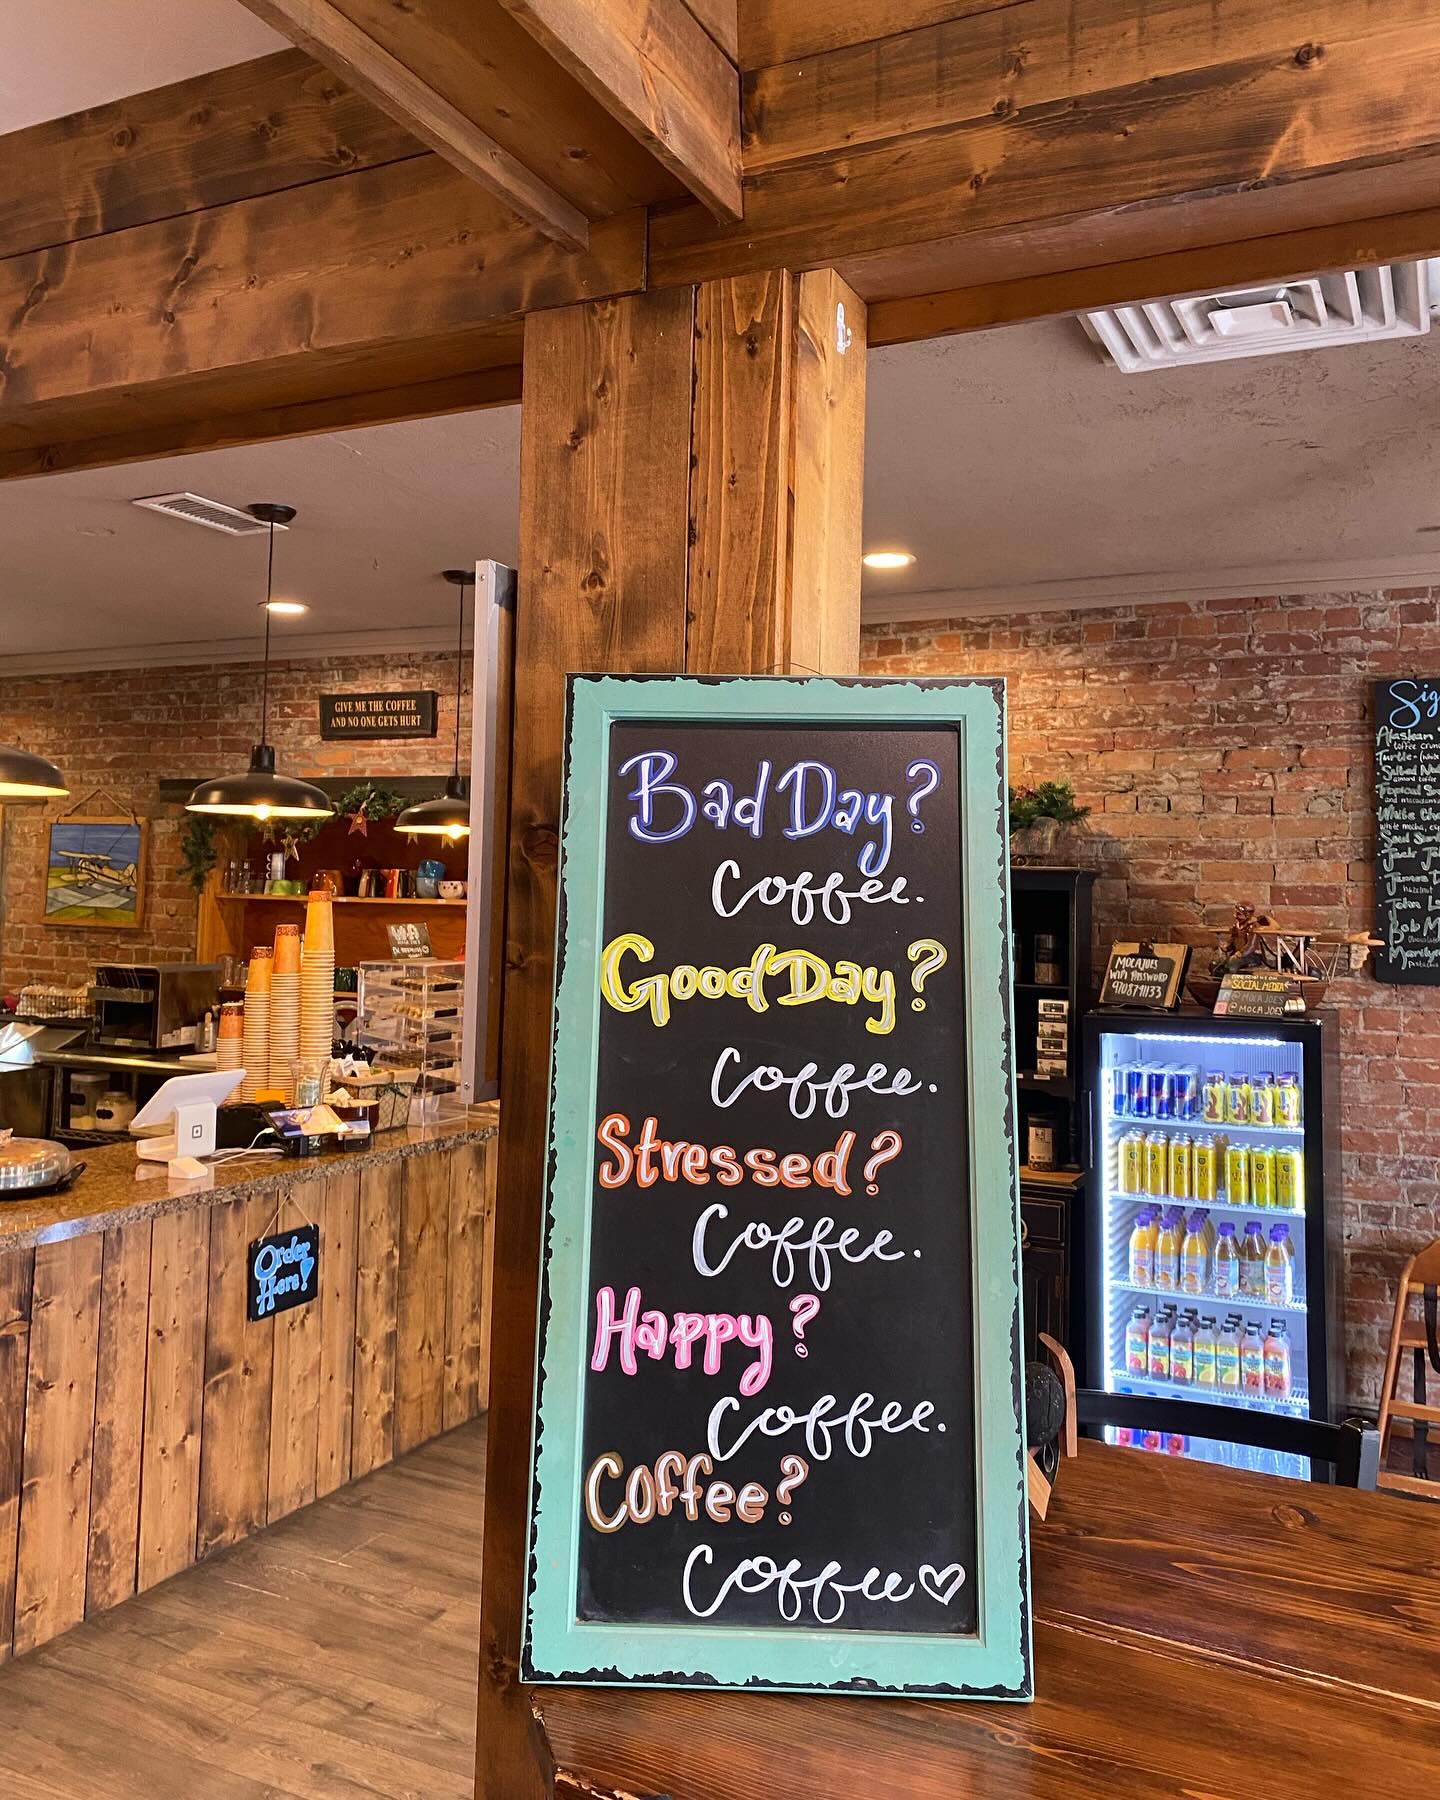 GIVE ME THE COFFEE
AND NO ONE GETS HURT
Bad Day?
Coffee.
Good Day?
Coffee.
Stressed?
Coffee.
Happy?
Coffee.
Coffee?
Coffee
Order
Here!
MOCA JOES
WIFI PASSWORD
SOCIAL MEDIA
@MOCA JOES
@MOCA JOES
Alaskan
Turtle-
White
white mocha,
hazelnut
Bob